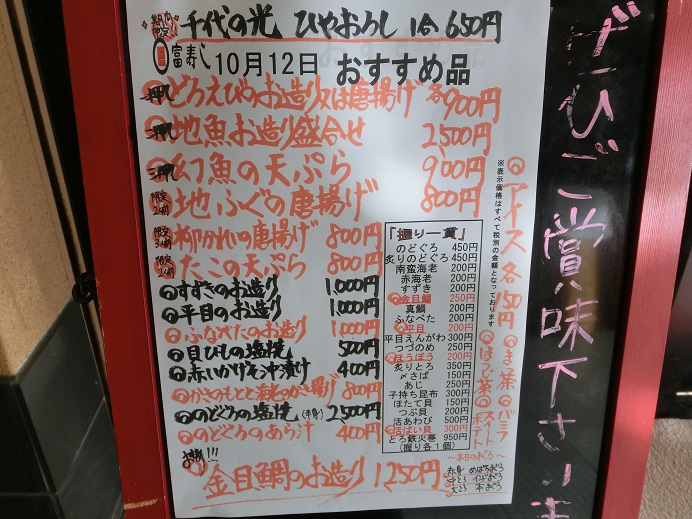 期間限定!! 千代の光 ひやおろし 1合 650円
富寿し 10月12日 おすすめ品
一押し どろえびのお造り又は唐揚げ 各900円
二押し 地魚お造り盛合せ 2,500円
三押し 幻魚の天ぷら 900円
限定2人前 地ふぐの唐揚げ 800円
限定3人前 柳かれいの唐揚げ 800円
限定2人前 たこの天ぷら 800円
すずきのお造り 1,000円
平目のお造り 1,000円
ふなべたのお造り 1,000円
貝ひもの塩焼 500円
赤いかげそ沖漬け 400円
かきのもとと海老のかき揚げ 800円
のどぐろの塩焼(半身) 2,500円
のどぐろのあら汁 400円
お薦め!!!
金目鯛のお造り 1,250円
「握り一貫」
のどぐろ 450円
炙りのどぐろ 450円
南蛮海老 200円
赤海老 200円
すずき 200円
金目鯛 250円
真鯛 200円
ふなべた 200円
平目 200円
平目えんがわ 300円
つづのめ 250円
ほうぼう 200円
炙りとろ 350円
〆さば 150円
あじ 250円
子持ち昆布 300円
ほたて貝 150円
つぶ貝 200円
活あわび 500円
活ばい貝 300円
とろ鉄火巻 950円
(握り各1個)
※表示価格はすべて税別の金額となっております
アイス 各150円
まっ茶 バニラ
ほうじ茶 スイートポテト
〜本日のまぐろ〜
赤身 めばちまぐろ
中とろ インドまぐろ
大とろ 本まぐろ
ぜひご賞味下さいませ